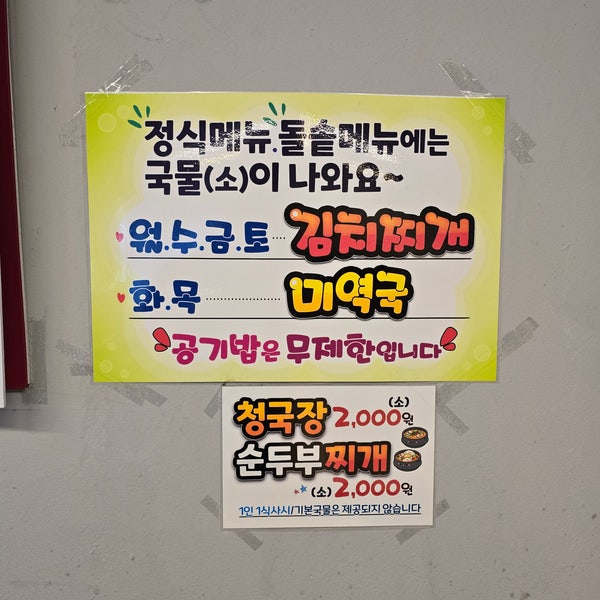 정식메뉴.돌솥메뉴에는
국물(소)이 나와요~
월.수.금.토 ···· 김치찌개
화.목 ···················· 미역국
공기밥은 무제한입니다
청국장 (소) 2,000원
순두부찌개
(소) 2,000원
1인 1식사시/기본국물은 제공되지 않습니다